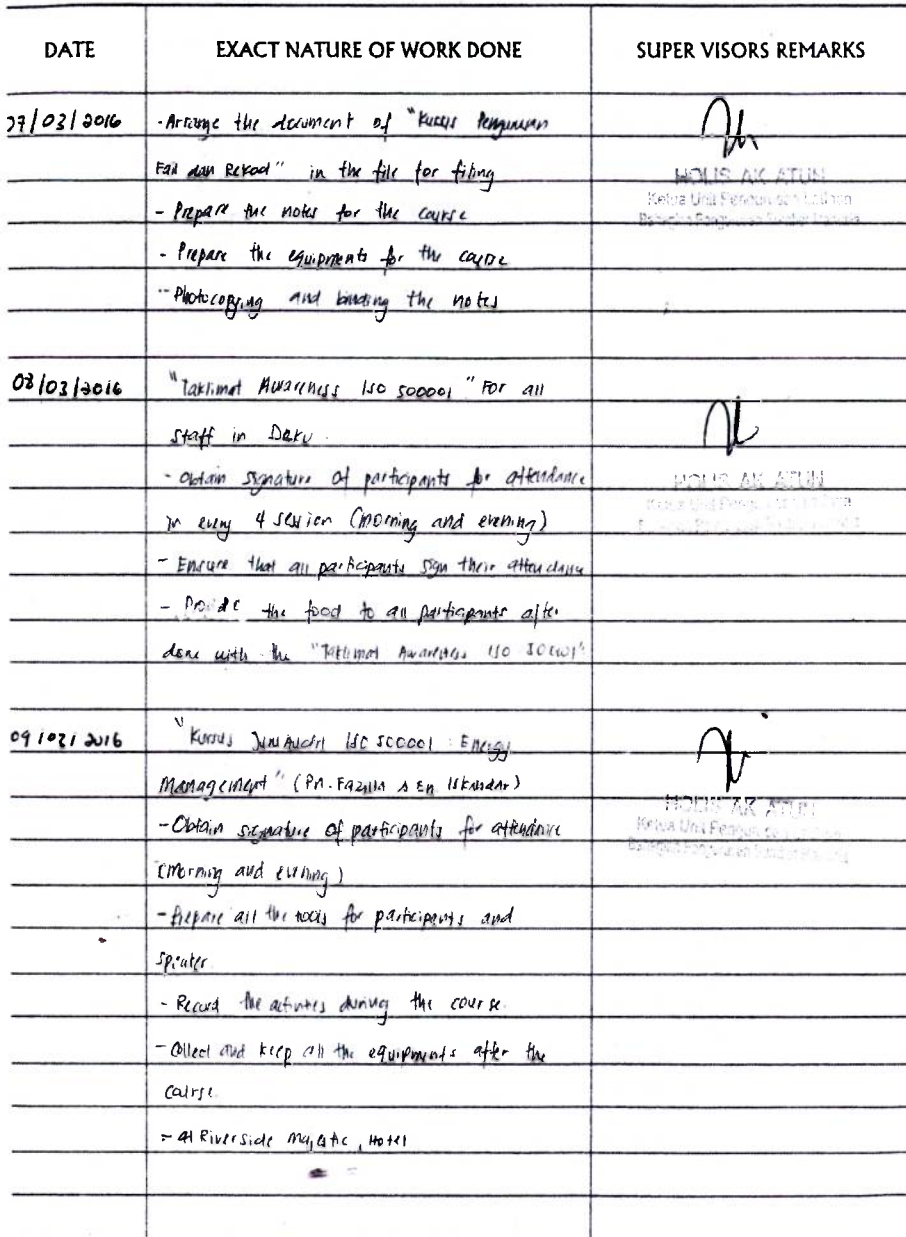 DATE EXACT NATURE OF WORK DONE SUPER VISORS REMARKS
07/03/2016 - Arrange the document of "Kursus Pengurusan
Fail dan Rekod" in the file for filing
HOLIS AK ATUN
- Prepare the notes for the course
- Prepare the equipments for the course
- Photocopying and binding the notes
08/03/2016 "Taklimat Awareness ISO 500001" For all
staff in
- Obtain signature of participants for attendance
HOLIS AK ATUN
in every 4 session (morning and evening)
- Ensure that all participants sign their attendance
- Provide the food to all participants after
done with the "Taklimat Awareness ISO 500001"
09/03/2016 "Kursus ISO 500001 : Energy
Management" (Pn. Fazilla & En Iskandar)
HOLIS AK ATUN
- Obtain signature of participants for attendance
(morning and evening)
- Prepare all the tools for participants and
speaker
- Record the activities during the course.
- Collect and keep all the equipments after the
course
- at Riverside Majestic, Hotel